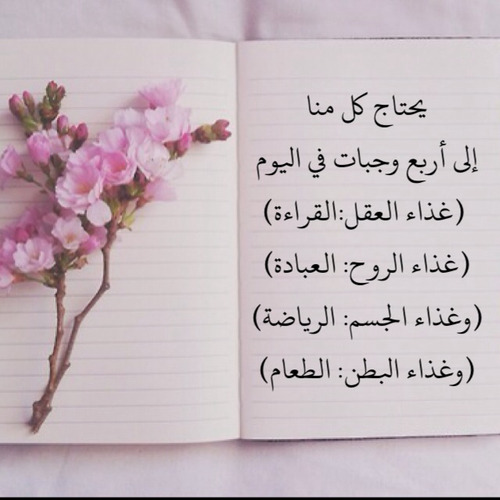 يحتاج كل منا
إلى أربع وجبات في اليوم
(غذاء العقل:القراءة)
(غذاء الروح: العبادة)
(وغذاء الجسم: الرياضة)
(وغذاء البطن: الطعام)